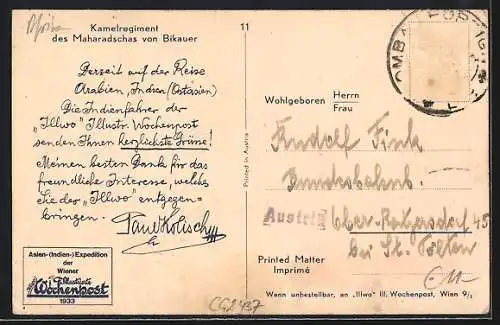 Kamelregiment
des Maharadschas von Bikauer
11
Derzeit auf der Reise
Arabien, Indien (Ostasien)
Die Indienfahrer der
„Illwo" Illustr. Wochenpost
senden Ihnen herzlichste Grüsse!
Meinen besten Dank für das
freundliche Interesse, welches
Sie der „Illwo" entgegen-
bringen.
Paul Kolisch
Printed in Austria
Wohlgeboren Herrn
Frau
Rudolf Fink
Bundesbahnb.
Austria
Ober-Ratzersdorf 45
bei St. Pölten
Asien-(Indien-)Expedition
der
Wiener
Illustrierte
Wochenpost
1933
Printed Matter
Imprimé
CG2437
Wenn unbestellbar, an „Illwo" Ill. Wochenpost, Wien 9/1